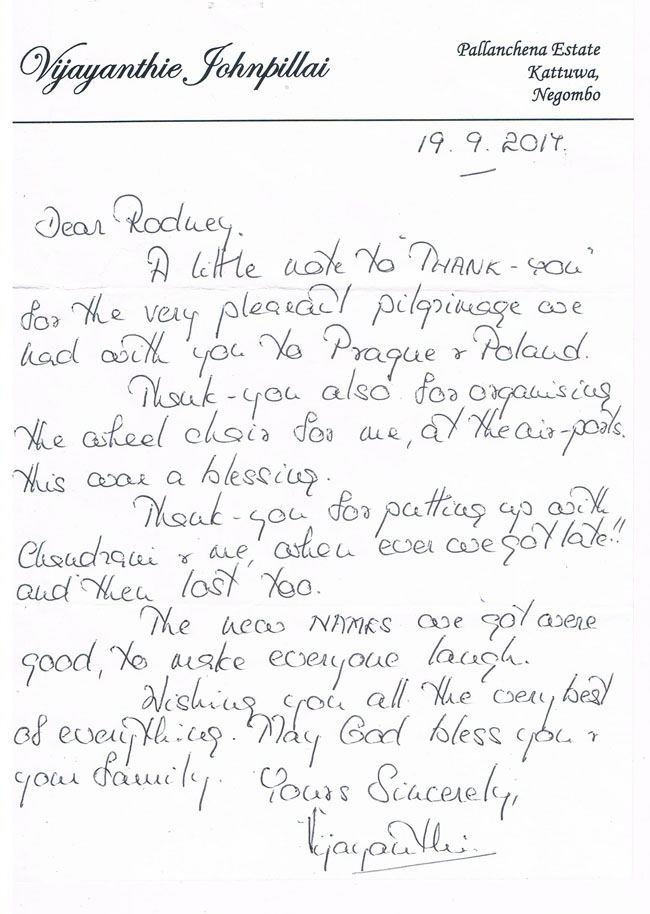 Vijayanthie Johnpillai
Pallanchena Estate
Kattuwa,
Negombo
19. 9. 2017.
Dear Rodney.
A little note to "THANK-you"
for the very pleasant pilgrimage we
had with you to Prague & Poland.
Thank-you also for organising
the wheel chair for me, at the air-ports.
this was a blessing.
Thank-you for putting up with
Chandrani & me, when ever we got late!!
and then lost too.
The new NAMES we got were
good, to make everyone laugh.
Wishing you all the very best
of everything. May God bless you &
your family. Yours Sincerely,
Vijayanthi.